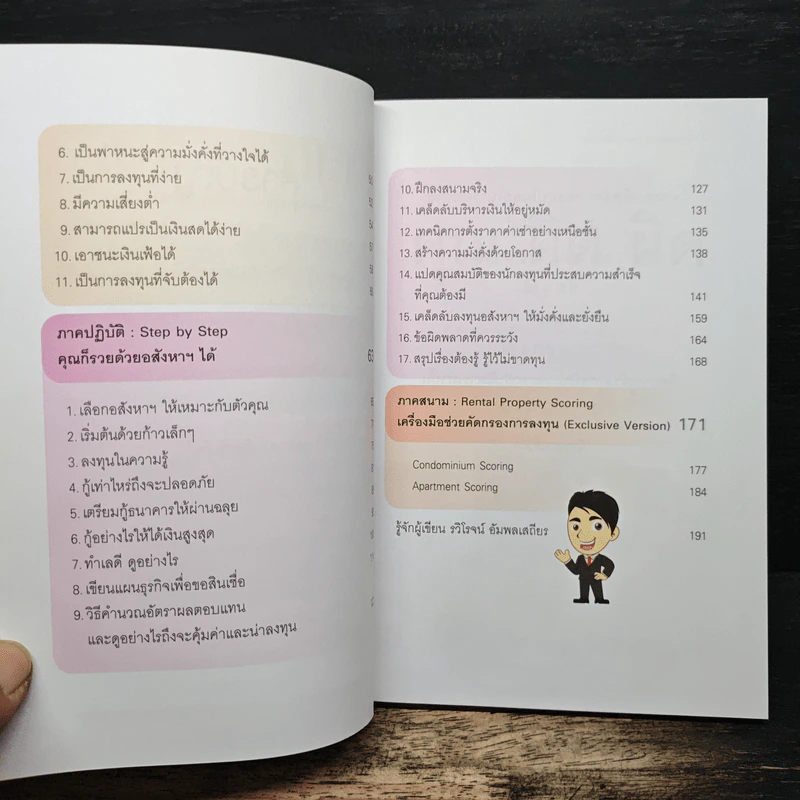 6. เป็นพาหนะสู่ความมั่งคั่งที่วางใจได้
7. เป็นการลงทุนที่ง่าย
8. มีความเสี่ยงต่ำ
9. สามารถแปรเป็นเงินสดได้ง่าย
10. เอาชนะเงินเฟ้อได้
11. เป็นการลงทุนที่จับต้องได้
ภาคปฏิบัติ : Step by Step
คุณก็รวยด้วยอสังหาฯ ได้ 63
1. เลือกอสังหาฯ ให้เหมาะกับตัวคุณ
2. เริ่มต้นด้วยก้าวเล็กๆ
3. ลงทุนในความรู้
4. กู้เท่าไหร่ถึงจะปลอดภัย
5. เตรียมกู้ธนาคารให้ผ่านฉลุย
6. กู้อย่างไรให้ได้เงินสูงสุด
7. ทำเลดี ดูอย่างไร
8. เขียนแผนธุรกิจเพื่อขอสินเชื่อ
9. วิธีคำนวณอัตราผลตอบแทน
และดูอย่างไรถึงจะคุ้มค่าและน่าลงทุน
10. ฝึกลงสนามจริง 127
11. เคล็ดลับบริหารเงินให้อยู่หมัด 131
12. เทคนิคการตั้งราคาค่าเช่าอย่างเหนือชั้น 135
13. สร้างความมั่งคั่งด้วยโอกาส 138
14. แปดคุณสมบัติของนักลงทุนที่ประสบความสำเร็จ
ที่คุณต้องมี 141
15. เคล็ดลับลงทุนอสังหาฯ ให้มั่งคั่งและยั่งยืน 159
16. ข้อผิดพลาดที่ควรระวัง 164
17. สรุปเรื่องต้องรู้ รู้ไว้ไม่ขาดทุน 168
ภาคสนาม : Rental Property Scoring
เครื่องมือช่วยคัดกรองการลงทุน (Exclusive Version) 171
Condominium Scoring 177
Apartment Scoring 184
รู้จักผู้เขียน รวิโรจน์ อัมพลเสถียร 191